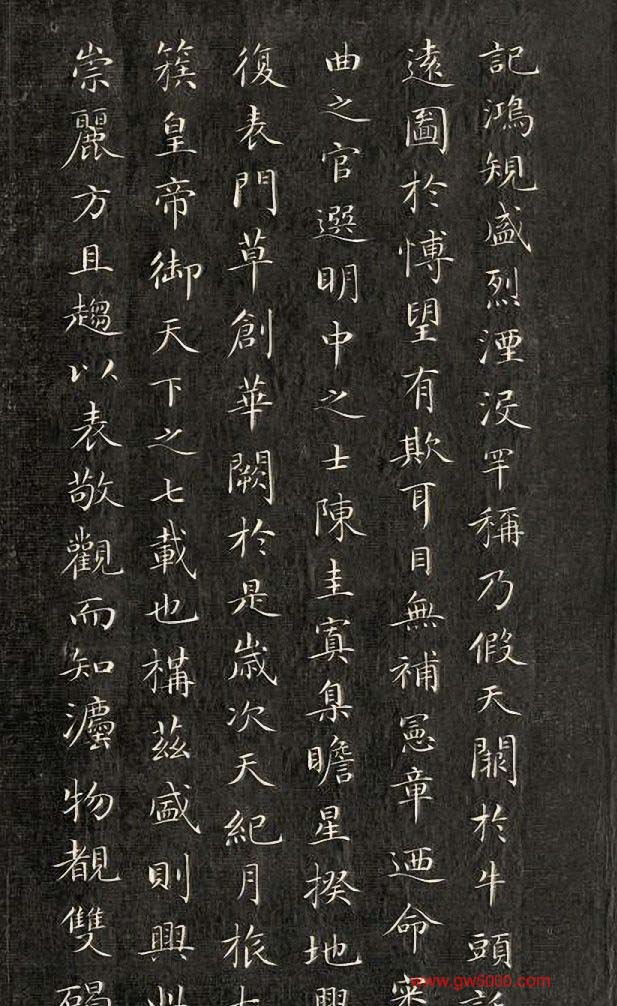 記鴻規盛烈湮没罕稱乃假天闕於牛頭
遠圖於愽望有欺耳目無補憲章迺命
曲之官選明中之士陳圭寘臬瞻星揆地興
復表門草創華闕於是歲次天紀月旅
簇皇帝御天下之七載也構茲盛則興此
崇麗方且趨以表敬觀而知灋物覩雙碣
www.gw6000.com